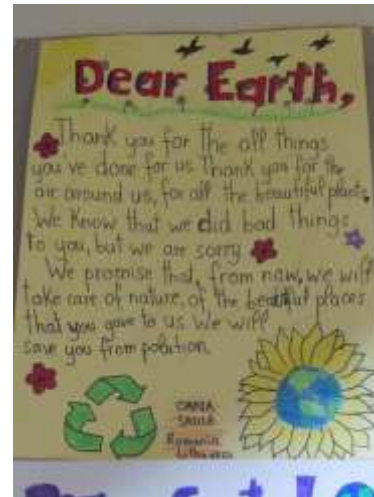 Dear Earth,
Thank you for the all things
you've done for us Thank you for the
air around us, for all the beautiful plants.
We know that we did bad things
to you, but we are sorry
We promise that, from now, we will
take care of nature, of the beautiful places
that you gave to us We will
save you from polution
Romania